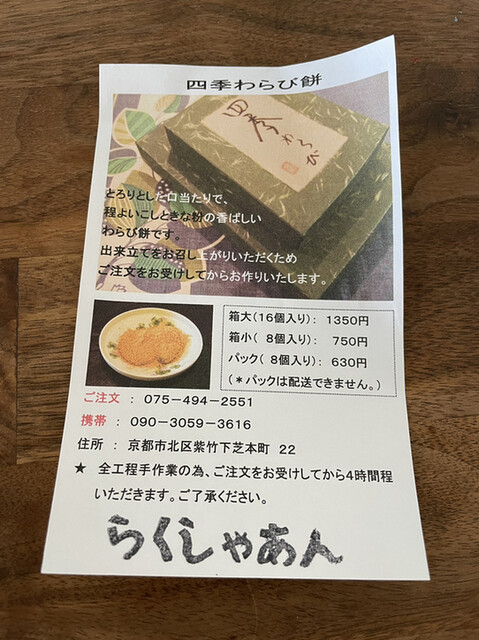 四季わらび餅
四季わらび
とろりとした口当たりで、
程よいこしときな粉の香ばしい
わらび餅です。
出来立てをお召し上がりいただくため
ご注文をお受けしてからお作りいたします。
箱大(16個入り): 1350円
箱小( 8個入り): 750円
パック( 8個入り): 630円
(*パックは配送できません。)
ご注文 : 075-494-2551
携帯 : 090-3059-3616
住所 : 京都市北区紫竹下芝本町 22
★ 全工程手作業の為、ご注文をお受けしてから4時間程
いただきます。ご了承ください。
らくしゃあん